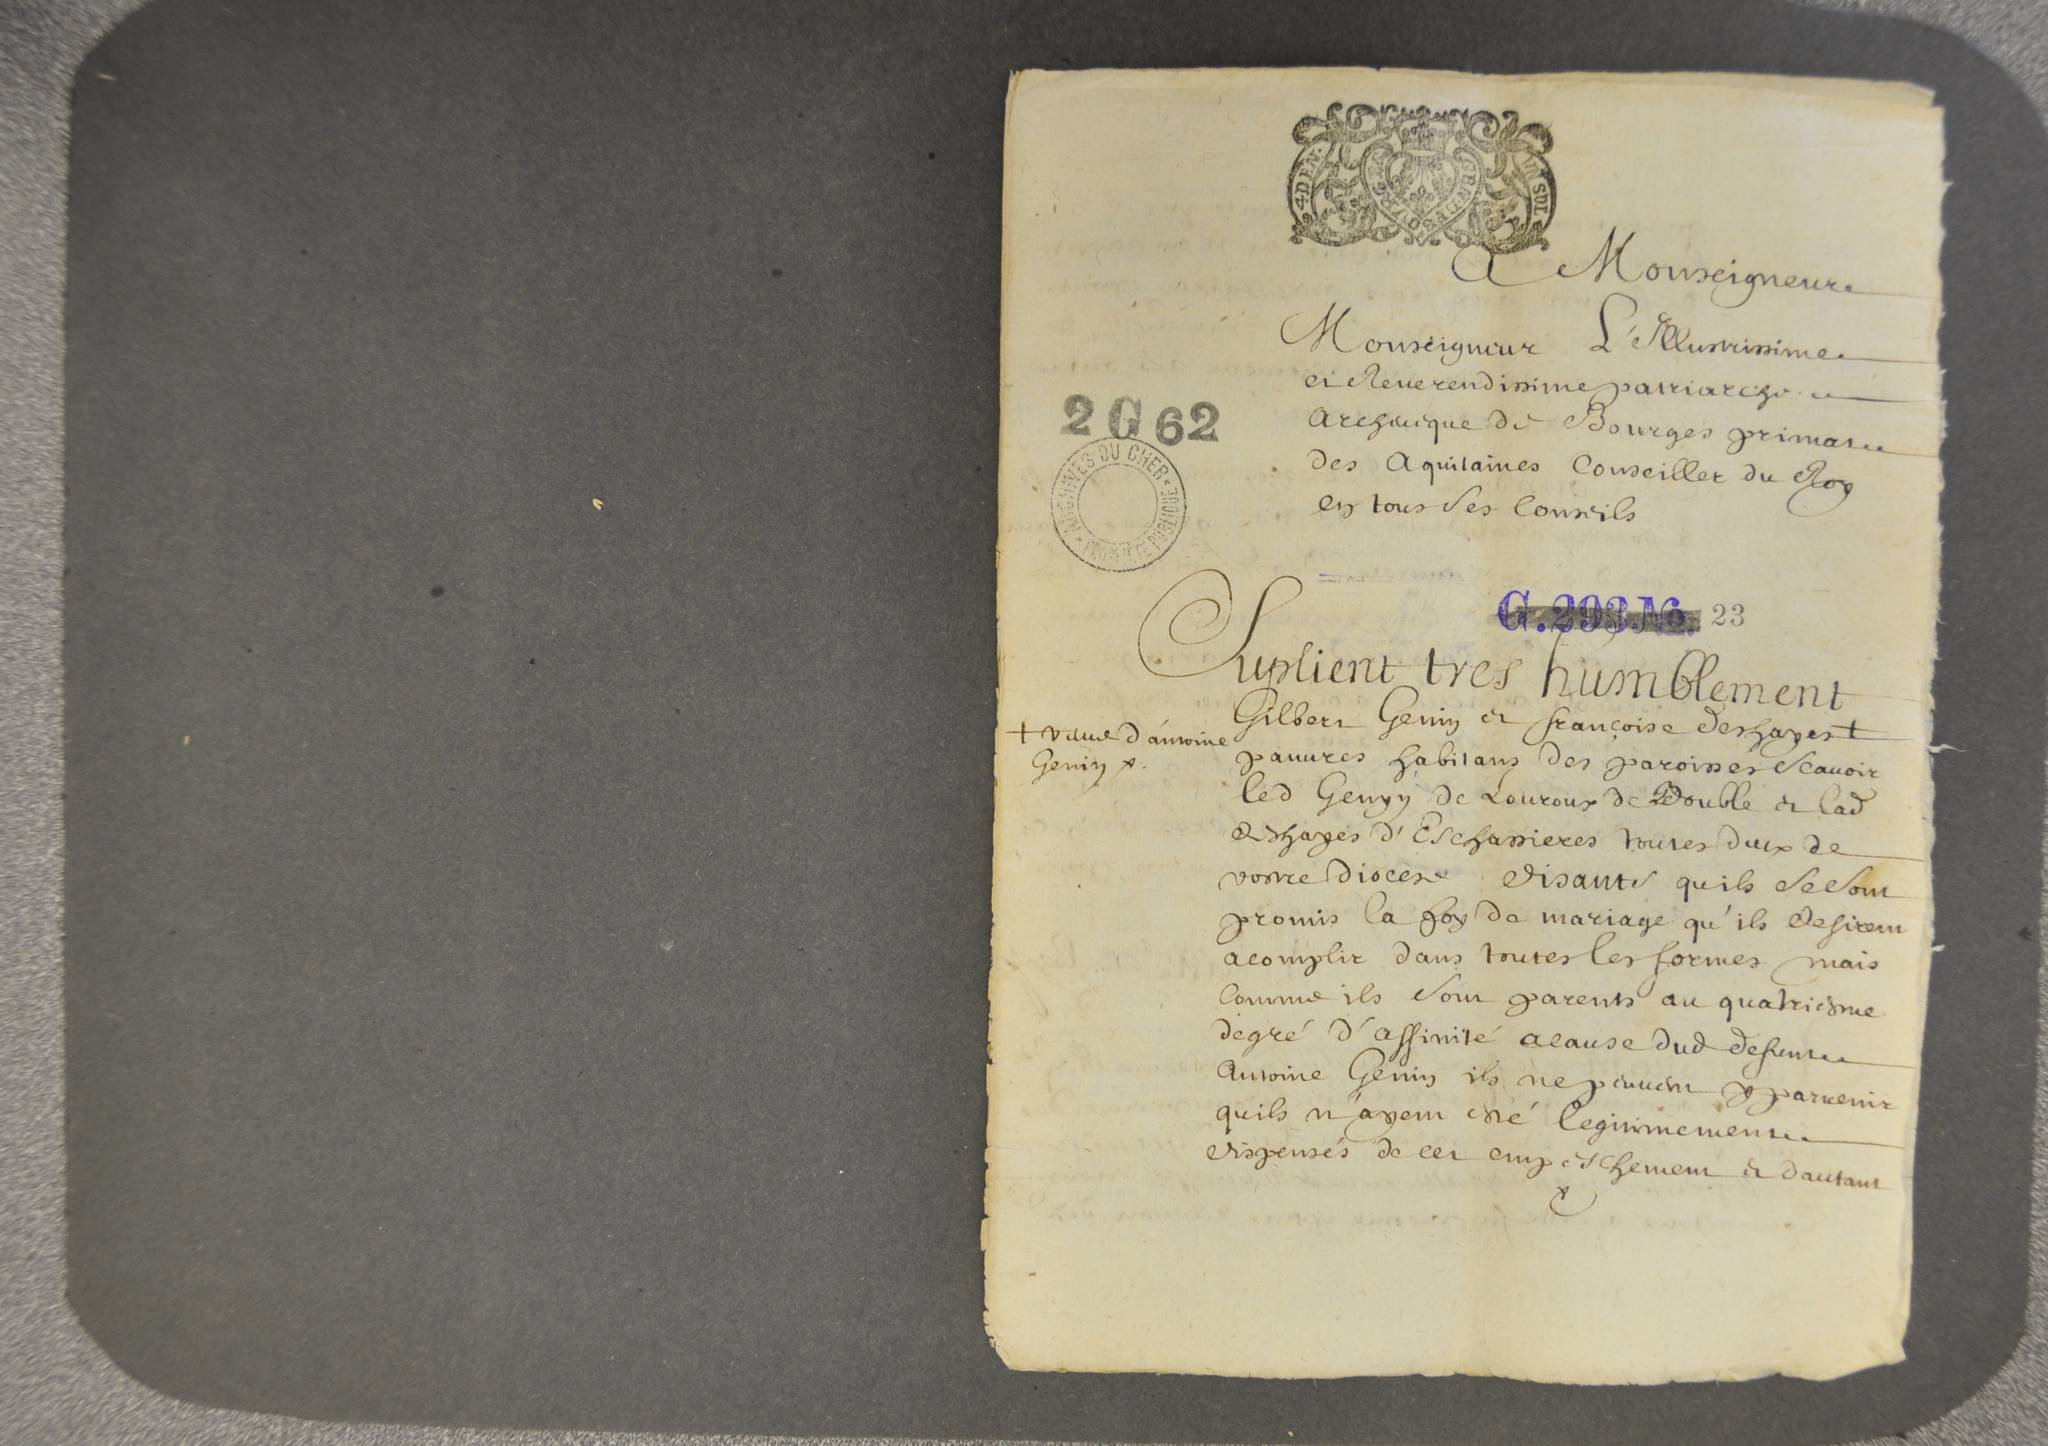 4 DEN.
UN SOL
A Monseigneur
Monseigneur L'Illustrissime
et Reverendissime patriarche
Archeuêque de Bourges primat
2 G 62
des Aquitaines Conseiller du Roy
en tous ses Conseils
ARCHIVES DU CHER
PROPRIÉTÉ PUBLIQUE
G. 293 No. 23
Suplient tres humblement
Gilbert Genin et françoise deshayes +
+ veuue d'antoine
Genin
pauures habitans des paroisses scauoir
led Genyn de Louroux de Double et lad
deshayes d'Eschassieres toutes deux de
vostre Diocese disants quils se sont
promis la foy de mariage qu'ils desirent
acomplir dans toutes les formes mais
comme ils sont parents au quatriesme
degré d'affinité acause dud defunt
Antoine Genin ils ne peuuent y paruenir
quils n'ayent esté legitimement
dispensés de cet empeschement et dautant